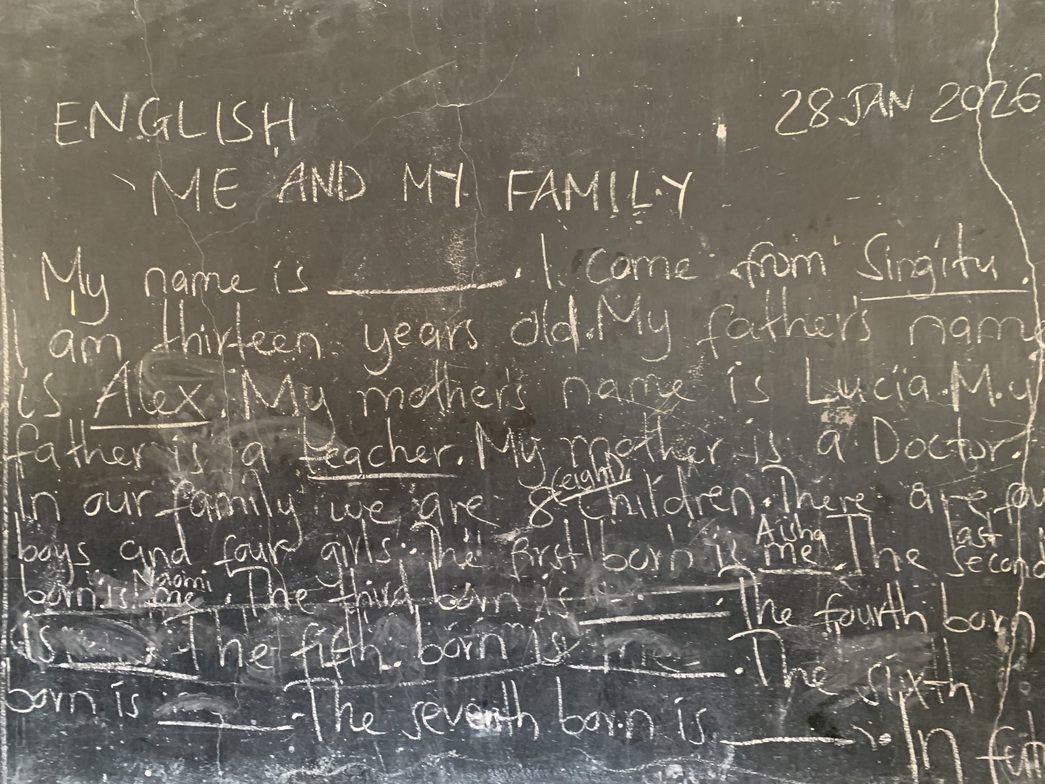 ENGLISH 28 JAN 2026
ME AND MY FAMILY
My name is ______. I come from Singitu.
I am thirteen years old. My father's name
is Alex. My mother's name is Lucia. My
father is a teacher. My mother is a Doctor.
(eight)
In our family we are 8 children. There are fou
Aisha last
boys and four girls. The first born is me. The second
Naomi
born is me. The third born is ______. The fourth born
is ______. The fifth born is me. The sixth
born is ______. The seventh born is ______. In fut